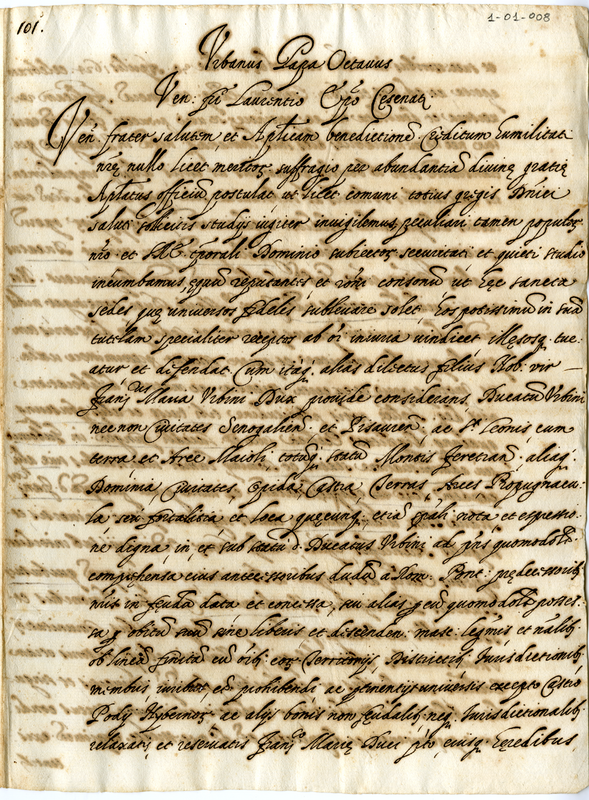 101.
1-01-008
Vrbanus Papa Octauus
Ven: fri Laurentio Epo Cesenat.
Ven frater salutem et Aplicam benedictione. Creditum humilitati
nre nullo licet meritor suffragio per abundantia diuine gratie
Aplatus officiu postulat ut licet comuni totius gregis Dnici
saluti solicitis studijs iugiter inuigilemus, peculiari tamen populor
nro et temporali Dominio subiector securitati et quieti studio
incumbamus, equu reputantes et roni consonu ut hec sancta
sedes que uniuersos fideles subleuare solet, eos potissimu in sua
tutelam specialiter receptos ab oi iniuria uindicet illesosq. tue-
atur et defendat. Cum itaq. alias dilectus filius Nob. vir
Franc.us Maria Vrbini Dux prouide considerans, Ducatu Vrbini
nec non ciuitates Senogalien. et Pisauren. ac S.ti Leonis, cum
terra et Arce Maioli, totumq. statu Montis Feretrani, aliaq.
Dominia, ciuitates, Opida, Castra, Terras, Arces, Propugnacu-
la, seu fortalitia et loca quecunq. etia spali nota et expressio-
ne digna, in, et sub statu d. Ducatus Vrbini ad pns quomodolt.
comprehensa eius antecessoribus dudu a Rom. Pont. predecessorib.
nris in feudu data et concessa, seu alias p eu quomodolt posses-
sa p obitu suu sine liberis et descenden. masc. legmis et nalib.
ob linea finita cu oib. eor Territorijs, Districtib. Iurisdictionib.
membris iuribus, ... prohibendi ac pertinentijs uniuersis excepto Castro
Podij Hybernor ac alijs bonis non feudalib. neq. Iurisdictionalib.
relaxatis et reseruatis Franc.co Marie Duci pto, eiusq. heredibus